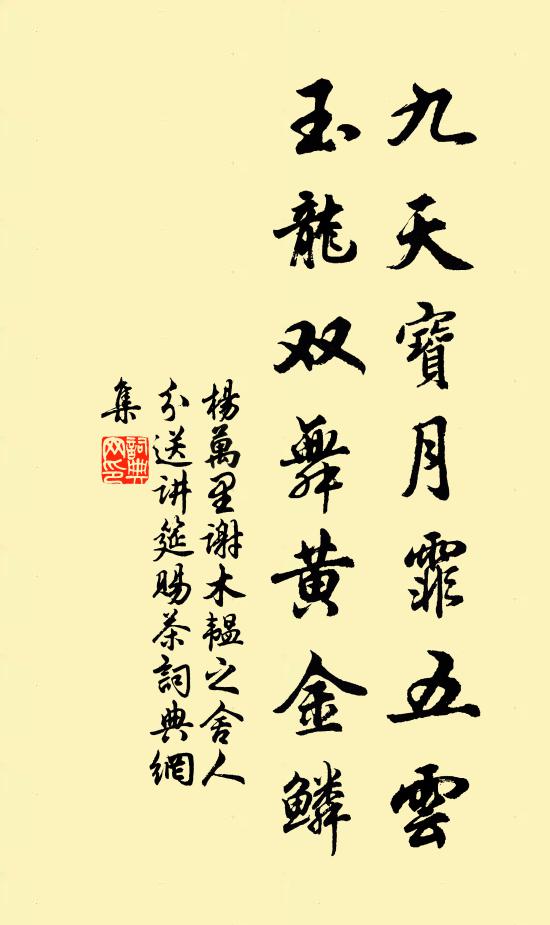 九天寶月霏五雲
玉龍双舞黄金鳞
楊萬里谢木韞之舍人
分送讲筵賜茶詞典網
集
詞典網印